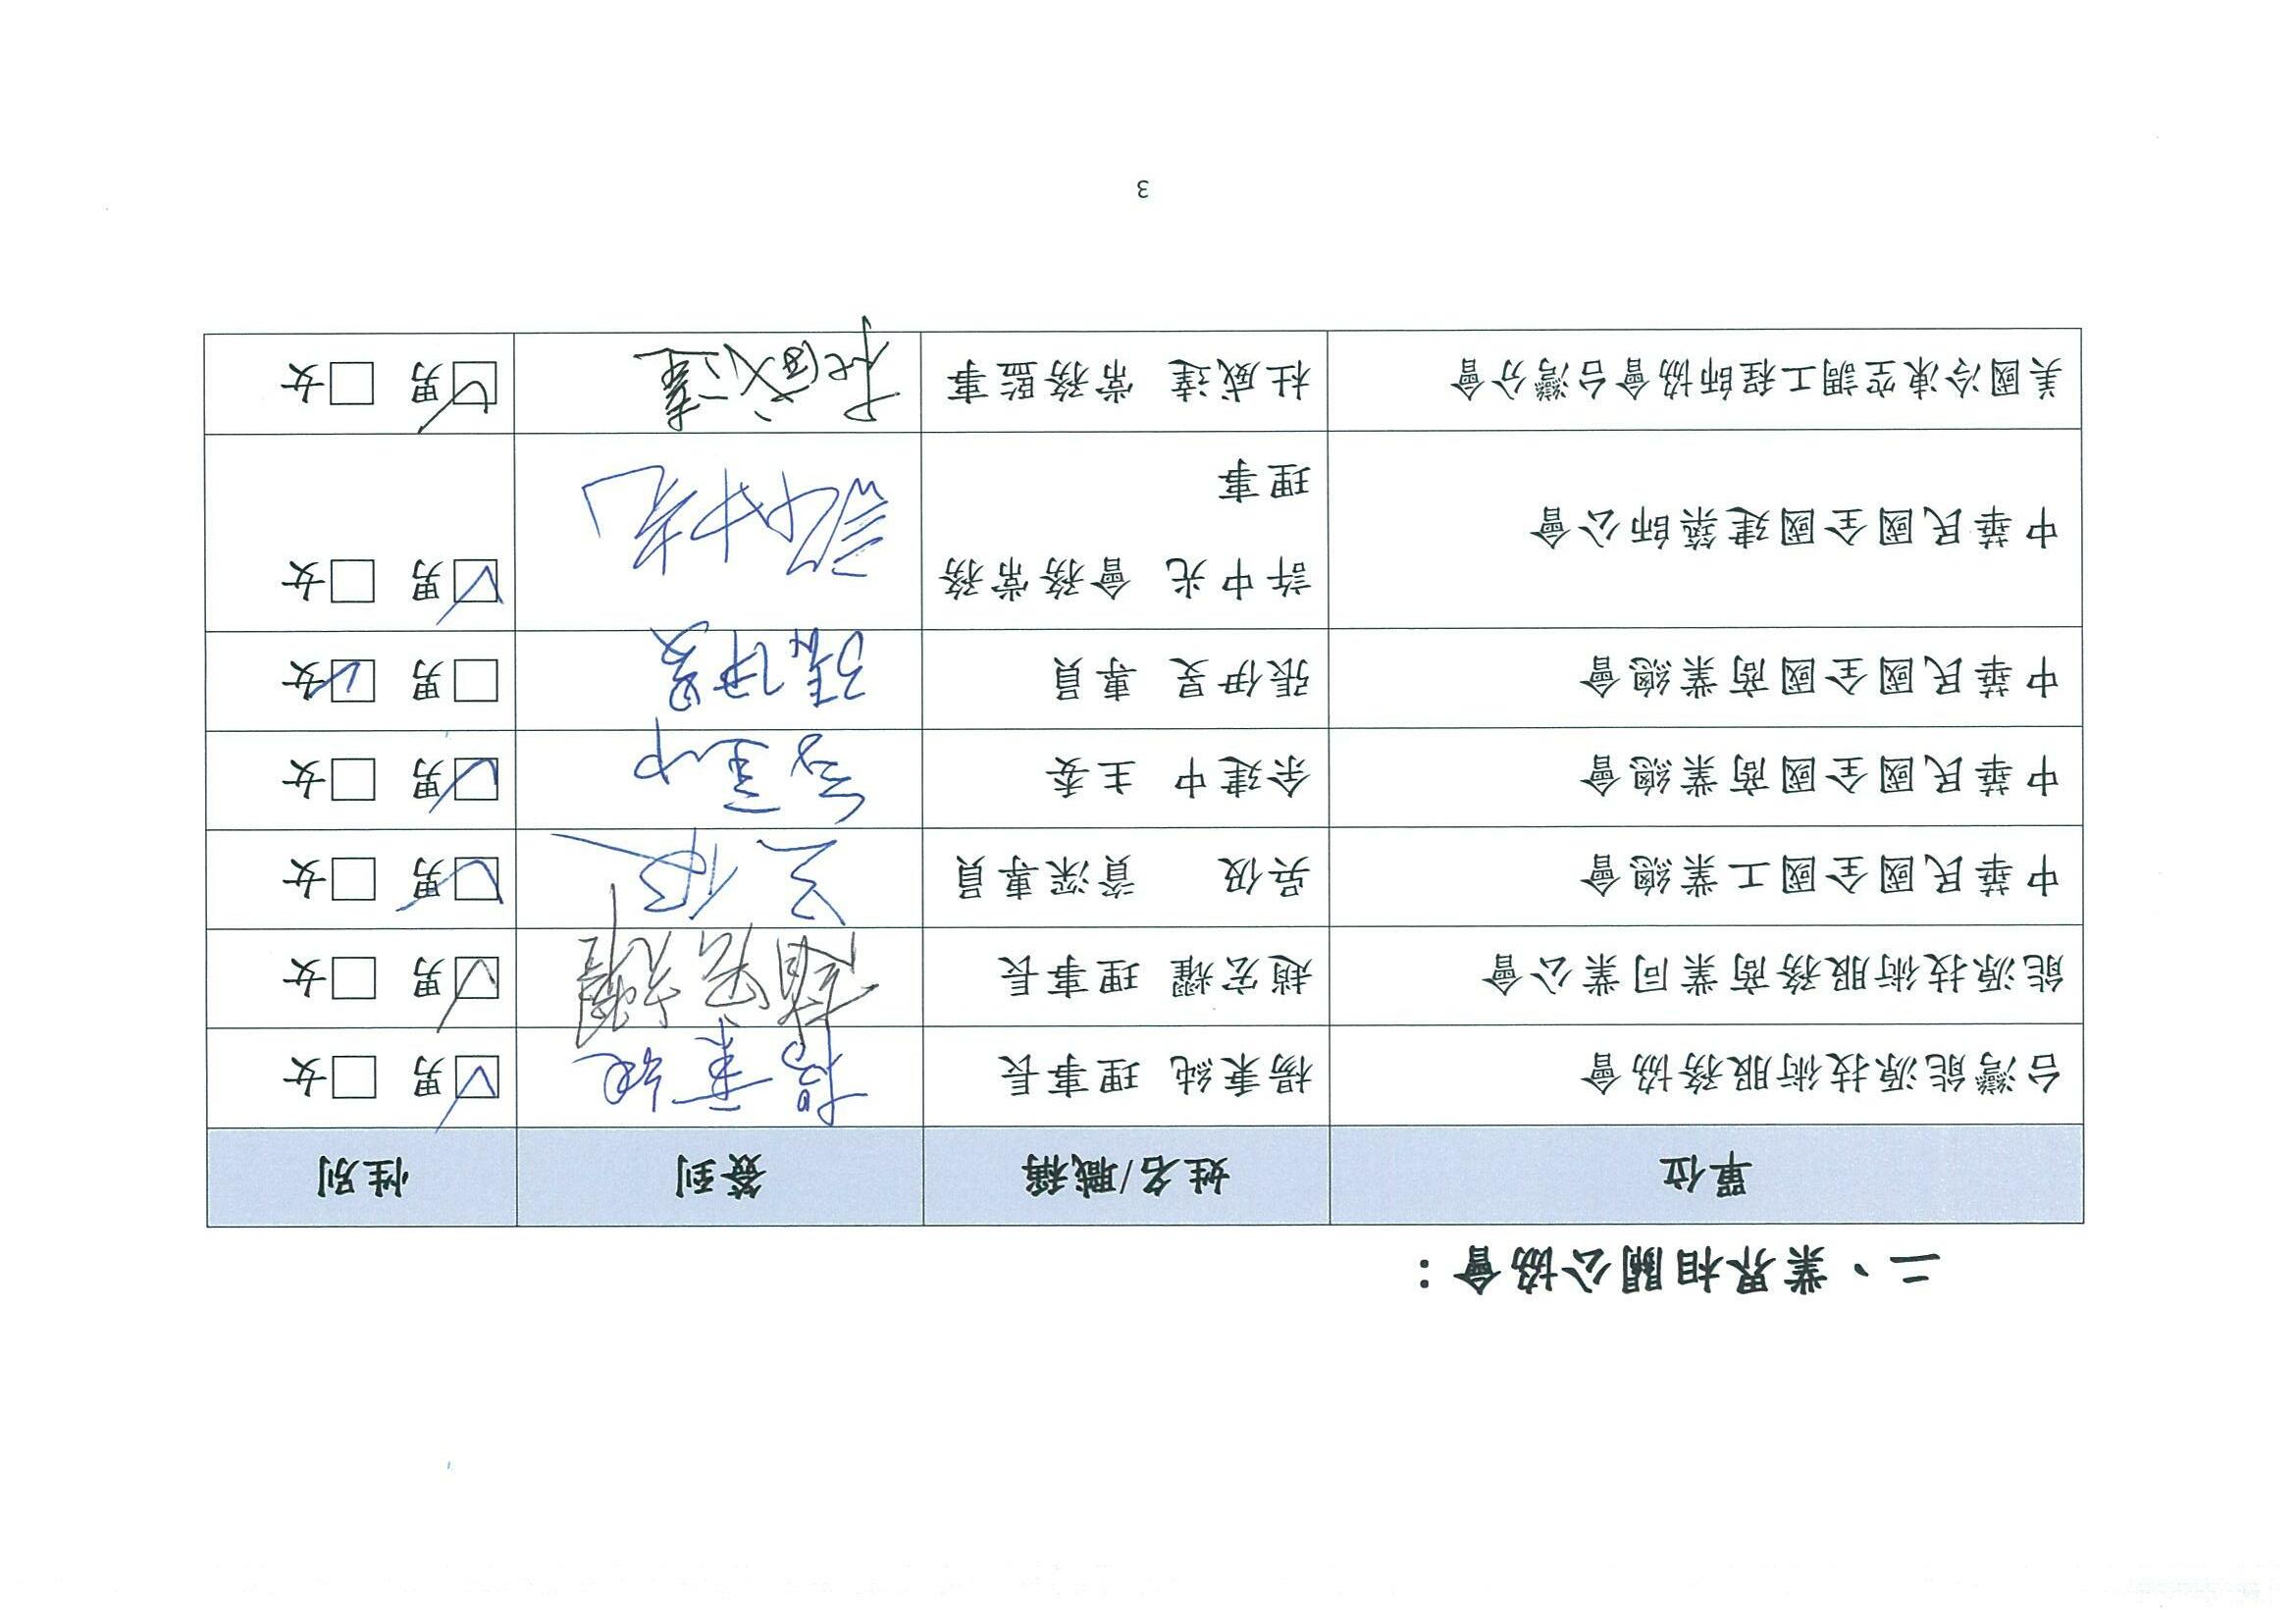 二、業界相關公協會：
單位 姓名/職稱 簽到 性別
台灣能源技術服務協會 楊秉純 理事長 楊秉純 ☑男 □女
能源技術服務商業同業公會 趙宏耀 理事長 趙宏耀 ☑男 □女
中華民國全國工業總會 吳伋 資深專員 吳伋 ☑男 □女
中華民國全國商業總會 余建中 主委 余建中 ☑男 □女
中華民國全國商業總會 張伊旻 專員 張伊旻 □男 ☑女
中華民國全國建築師公會 許中光 會務常務 許中光 ☑男 □女
理事
美國冷凍空調工程師協會台灣分會 杜威達 常務監事 杜威達 ☑男 □女
3